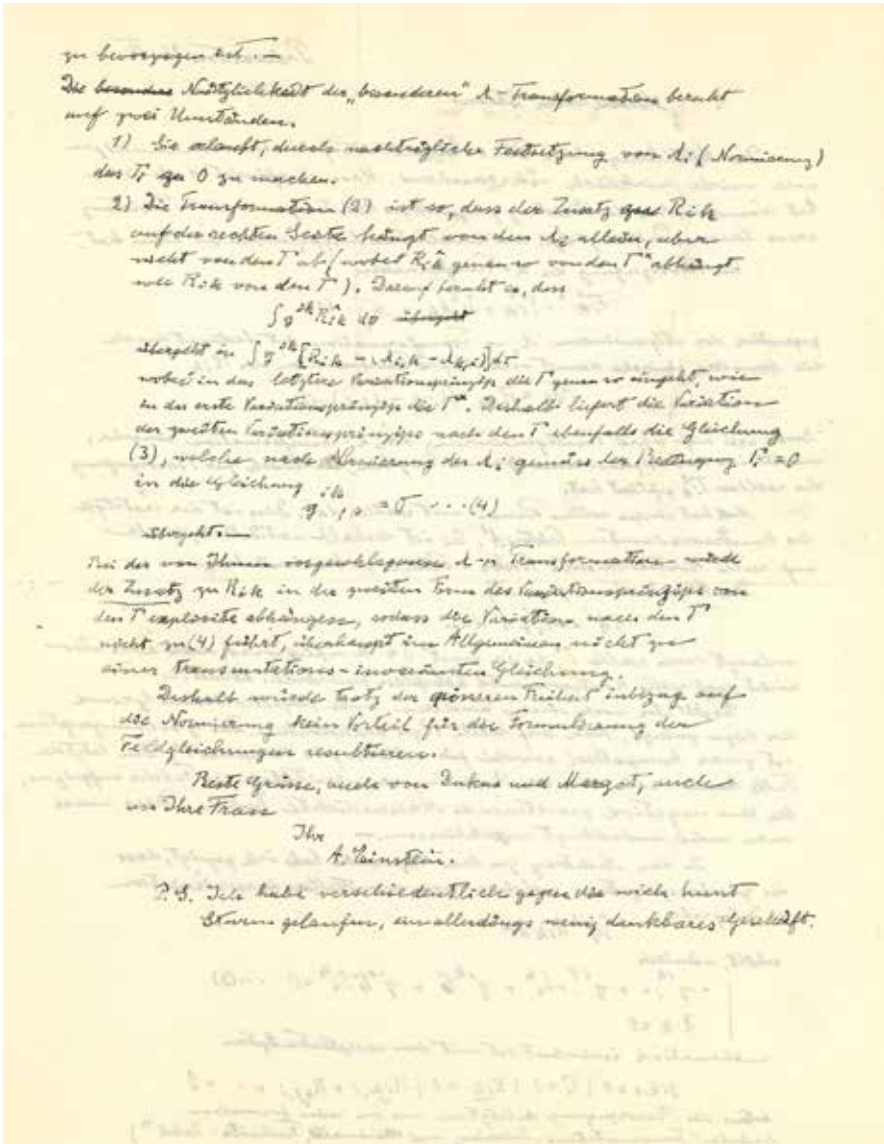 zu bevorzugen ist. —
Die besondere Nützlichkeit der „besonderen" λ-Transformation beruht
auf zwei Umständen.
1) Sie erlaubt, durch nachträgliche Festsetzung von λi (Normierung)
das Γi zu 0 zu machen.
2) Die Transformation (2) ist so, dass der Zusatz Rik
auf der rechten Seite hängt von den λi allein, aber
nicht von den Γ ab (wobei Rik* genau so von den Γ* abhängt
wie Rik von den Γ). Darauf beruht es, dass
∫ g^ik Rik* dτ übergeht
übergeht in ∫ g^ik [Rik − (λi,k − λk,i)] dτ
wobei in das letztere Variationsprinzip die Γ genau so eingeht, wie
in das erste Variationsprinzip die Γ*. Deshalb liefert die Variation
des zweiten Variationsprinzips nach den Γ ebenfalls die Gleichung
(3), welche nach Normierung der λi gemäss der Bedingung Γi = 0
in die Gleichung
g^ik ;s = 0 - - - (4)
übergeht. —
Bei der von Ihnen vorgeschlagenen Transformation würde
der Zusatz zu Rik in der zweiten Form des Variationsprinzips von
den Γ explizite abhängen, sodass die Variation nach den Γ
nicht zu (4) führt, überhaupt im Allgemeinen nicht zu
einer transmutations-invarianten Gleichung.
Deshalb würde trotz der grösseren Freiheit inbezug auf
die Normierung kein Vorteil für die Formulierung der
Feldgleichungen resultieren.
Beste Grüsse, auch von Dukas und Margot, auch
an Ihre Frau
Ihr
A. Einstein.
P.S. Ich habe verschiedentlich gegen die
Sturm gelaufen, ein allerdings wenig dankbares Geschäft.